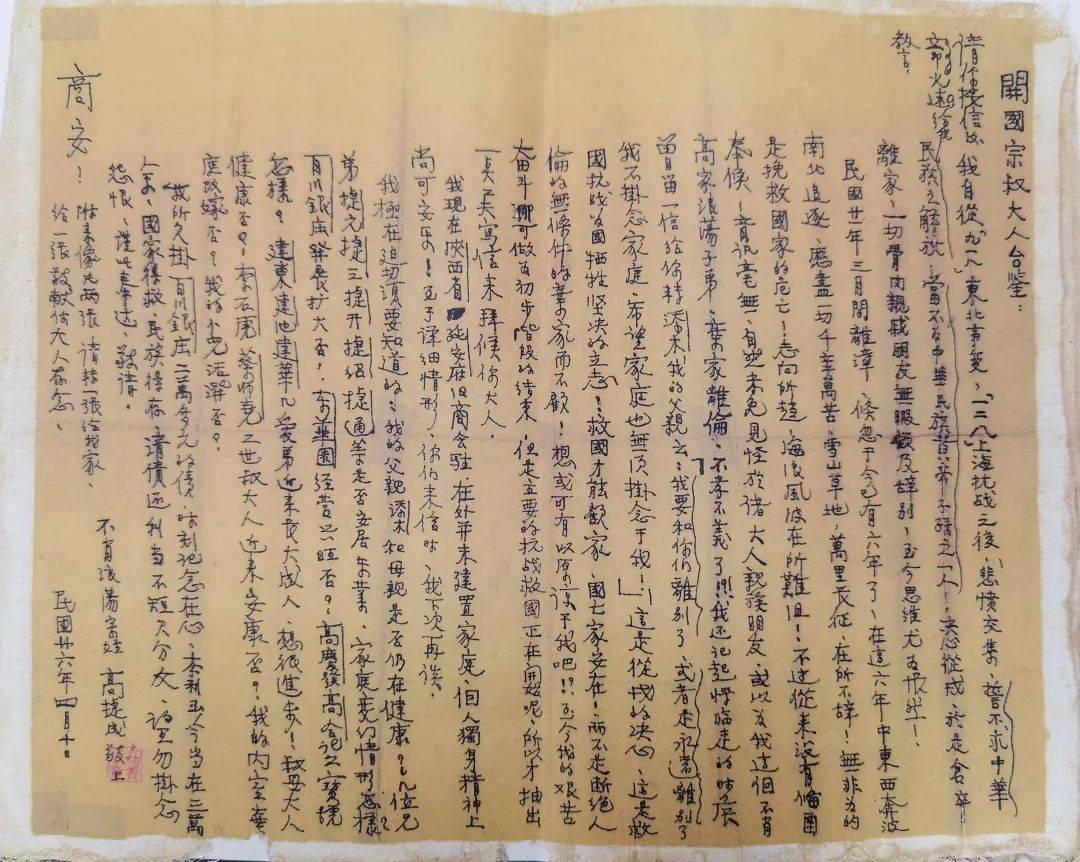 開國宗叔大人台鑒：
請你接信後
即火速給
教言。
我自從「九一八」東北事变，「一二八」上海抗战之後，悲憤交集，誓不求中華
民族之解放，當不為中華民族黃帝子孫之一人，決志從戎，於是倉卒
離家，一切骨肉親戚朋友無暇顧及辞別，至今思維尤為悵然！
民國廿年三月間離漳，倏忽于今已有六年了，在這六年中東西奔波
南北追逐，歷盡一切千辛萬苦，雪山草地，萬里長征，在所不辞！無非為的
是挽救國家的危亡！志向所趨，海浪風波在所難阻！不过從来没有偷閒
奉候，音訊毫無，自然未免見怪於诸大人親族朋友，或以為我這個不肖
高家浪蕩子弟，棄家離倫，不孝不義了!!!我还記起悼臨走的時辰
曾留一信給你轉添木我的父親云：我要和你们離别了，或者是永遠離别了
我不掛念家庭，希望家庭也無須掛念于我！」這是從戎的决心，這是救
國抗战为國牺牲坚决的立志！救國才能顧家，國亡家安在！而不是断绝人
倫的無條件的棄家而不顧！想或可有以原谅于我吧!?至今我的艰苦
奋斗聊可做为初步階段的結束，但是主要的抗战救國正在開始呢，所以才抽出
一負來寫信来拜候你大人。
我現在陝西省延安府旧商会驻，在外并未建置家庭，但人獨身精神上
尚可安乐！至于详细情形，你们来信时，我下次再談。
我極在迫切須要知道的：我的父親添木和母親是否仍在健康？几位兄
弟捷元捷三捷开捷绍捷通等是否安居乐業，家庭变幻情形怎樣？
百川銀庄發展扩大否？东華園经营兴旺否？高慶發高念記之寶號
怎樣？建東建池建華几爱弟近来長大成人，想很進步！叔母大人
健康否？李石虎蔡師尧二世叔大人近来安康否？我的内室華
庭改嫁否？我的小儿活潑否？
我所久掛百川銀庄二萬多元的债，时刻記念在心，本利至今当在三萬
余，國家得救，民族得存，清债还利当不短欠分文，請勿掛念
怨恨，謹此奉达，敬请。
商安！
附来像片两张，请轉一張給我家、
给一張敬献你大人存念、
不肖浪蕩宗姪 高捷成敬上
民國廿六年四月十日